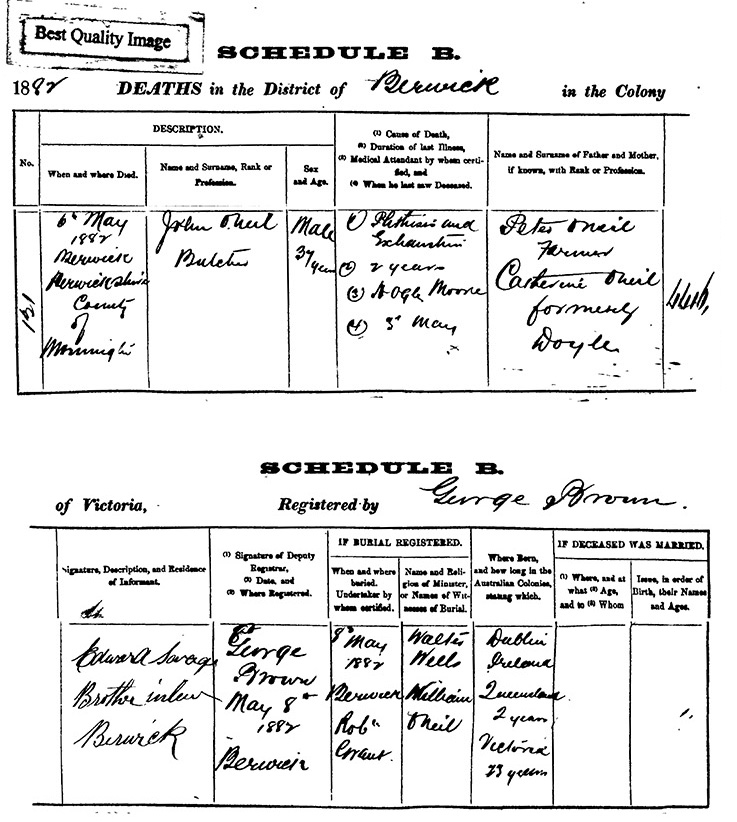 Best Quality Image
SCHEDULE B.
1882 DEATHS in the District of Berwick in the Colony
No.
DESCRIPTION.
When and where Died.
Name and Surname, Rank or
Profession.
Sex
and Age.
(1) Cause of Death,
(2) Duration of last Illness,
(3) Medical Attendant by whom certi-
fied, and
(4) When he last saw Deceased.
Name and Surname of Father and Mother,
if known, with Rank or Profession.
131
6th May
1882
Berwick
Berwick Shire
County
of
John Oneil
Butcher
Male
37
years
(1) Phthisis and
Exhaustion
(2) 2 years
(3) Ogle Moore
(4) 5th May
Peter Oneil
Farmer
Catherine Oneil
formerly
Doyle
SCHEDULE B.
of Victoria, Registered by George Brown.
Signature, Description, and Residence
of Informant.
(1) Signature of Deputy
Registrar,
(2) Date, and
(3) Where Registered.
IF BURIAL REGISTERED.
When and where
buried.
Undertaker by
whom certified.
Name and Reli-
gion of Minister,
or Names of Wit-
nesses of Burial.
Where Born,
and how long in the
Australian Colonies,
stating which.
IF DECEASED WAS MARRIED.
(1) Where, and at
what (2) Age,
and to (3) Whom
Issue, in order of
Birth, their Names
and Ages.
Edward Savage
Brother in law
Berwick
George
Brown
May 8th
1882
Berwick
8th May
1882
Berwick
Robt
Grant
Walter
Wells
William
Oneil
Dublin
Ireland
Queensland
2 years
Victoria
23 years